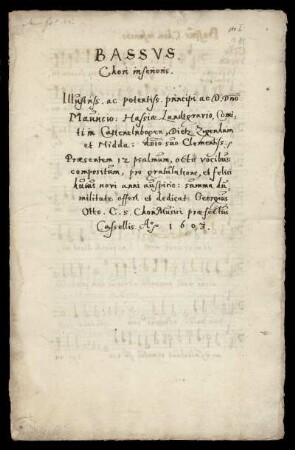 BASSVS.
Chori inferioris.
Illustriss. ac potentiss. principi ac D. Dno
Mauricio: Hassiæ Landgravio, Comi,
ti in Cattenelnbogen, Dietz, Zigenhain
et Nidda: dno suo Clementiss.
Præsentem 12 psalmum, octo vocibus
compositum, pro gratulatione, et felici
huius novi anni auspicio: summa hu,
militate offert et dedicat Georgius
Otto. C. s. Chori Musici præfectus
Cassellis. Aº 1603.